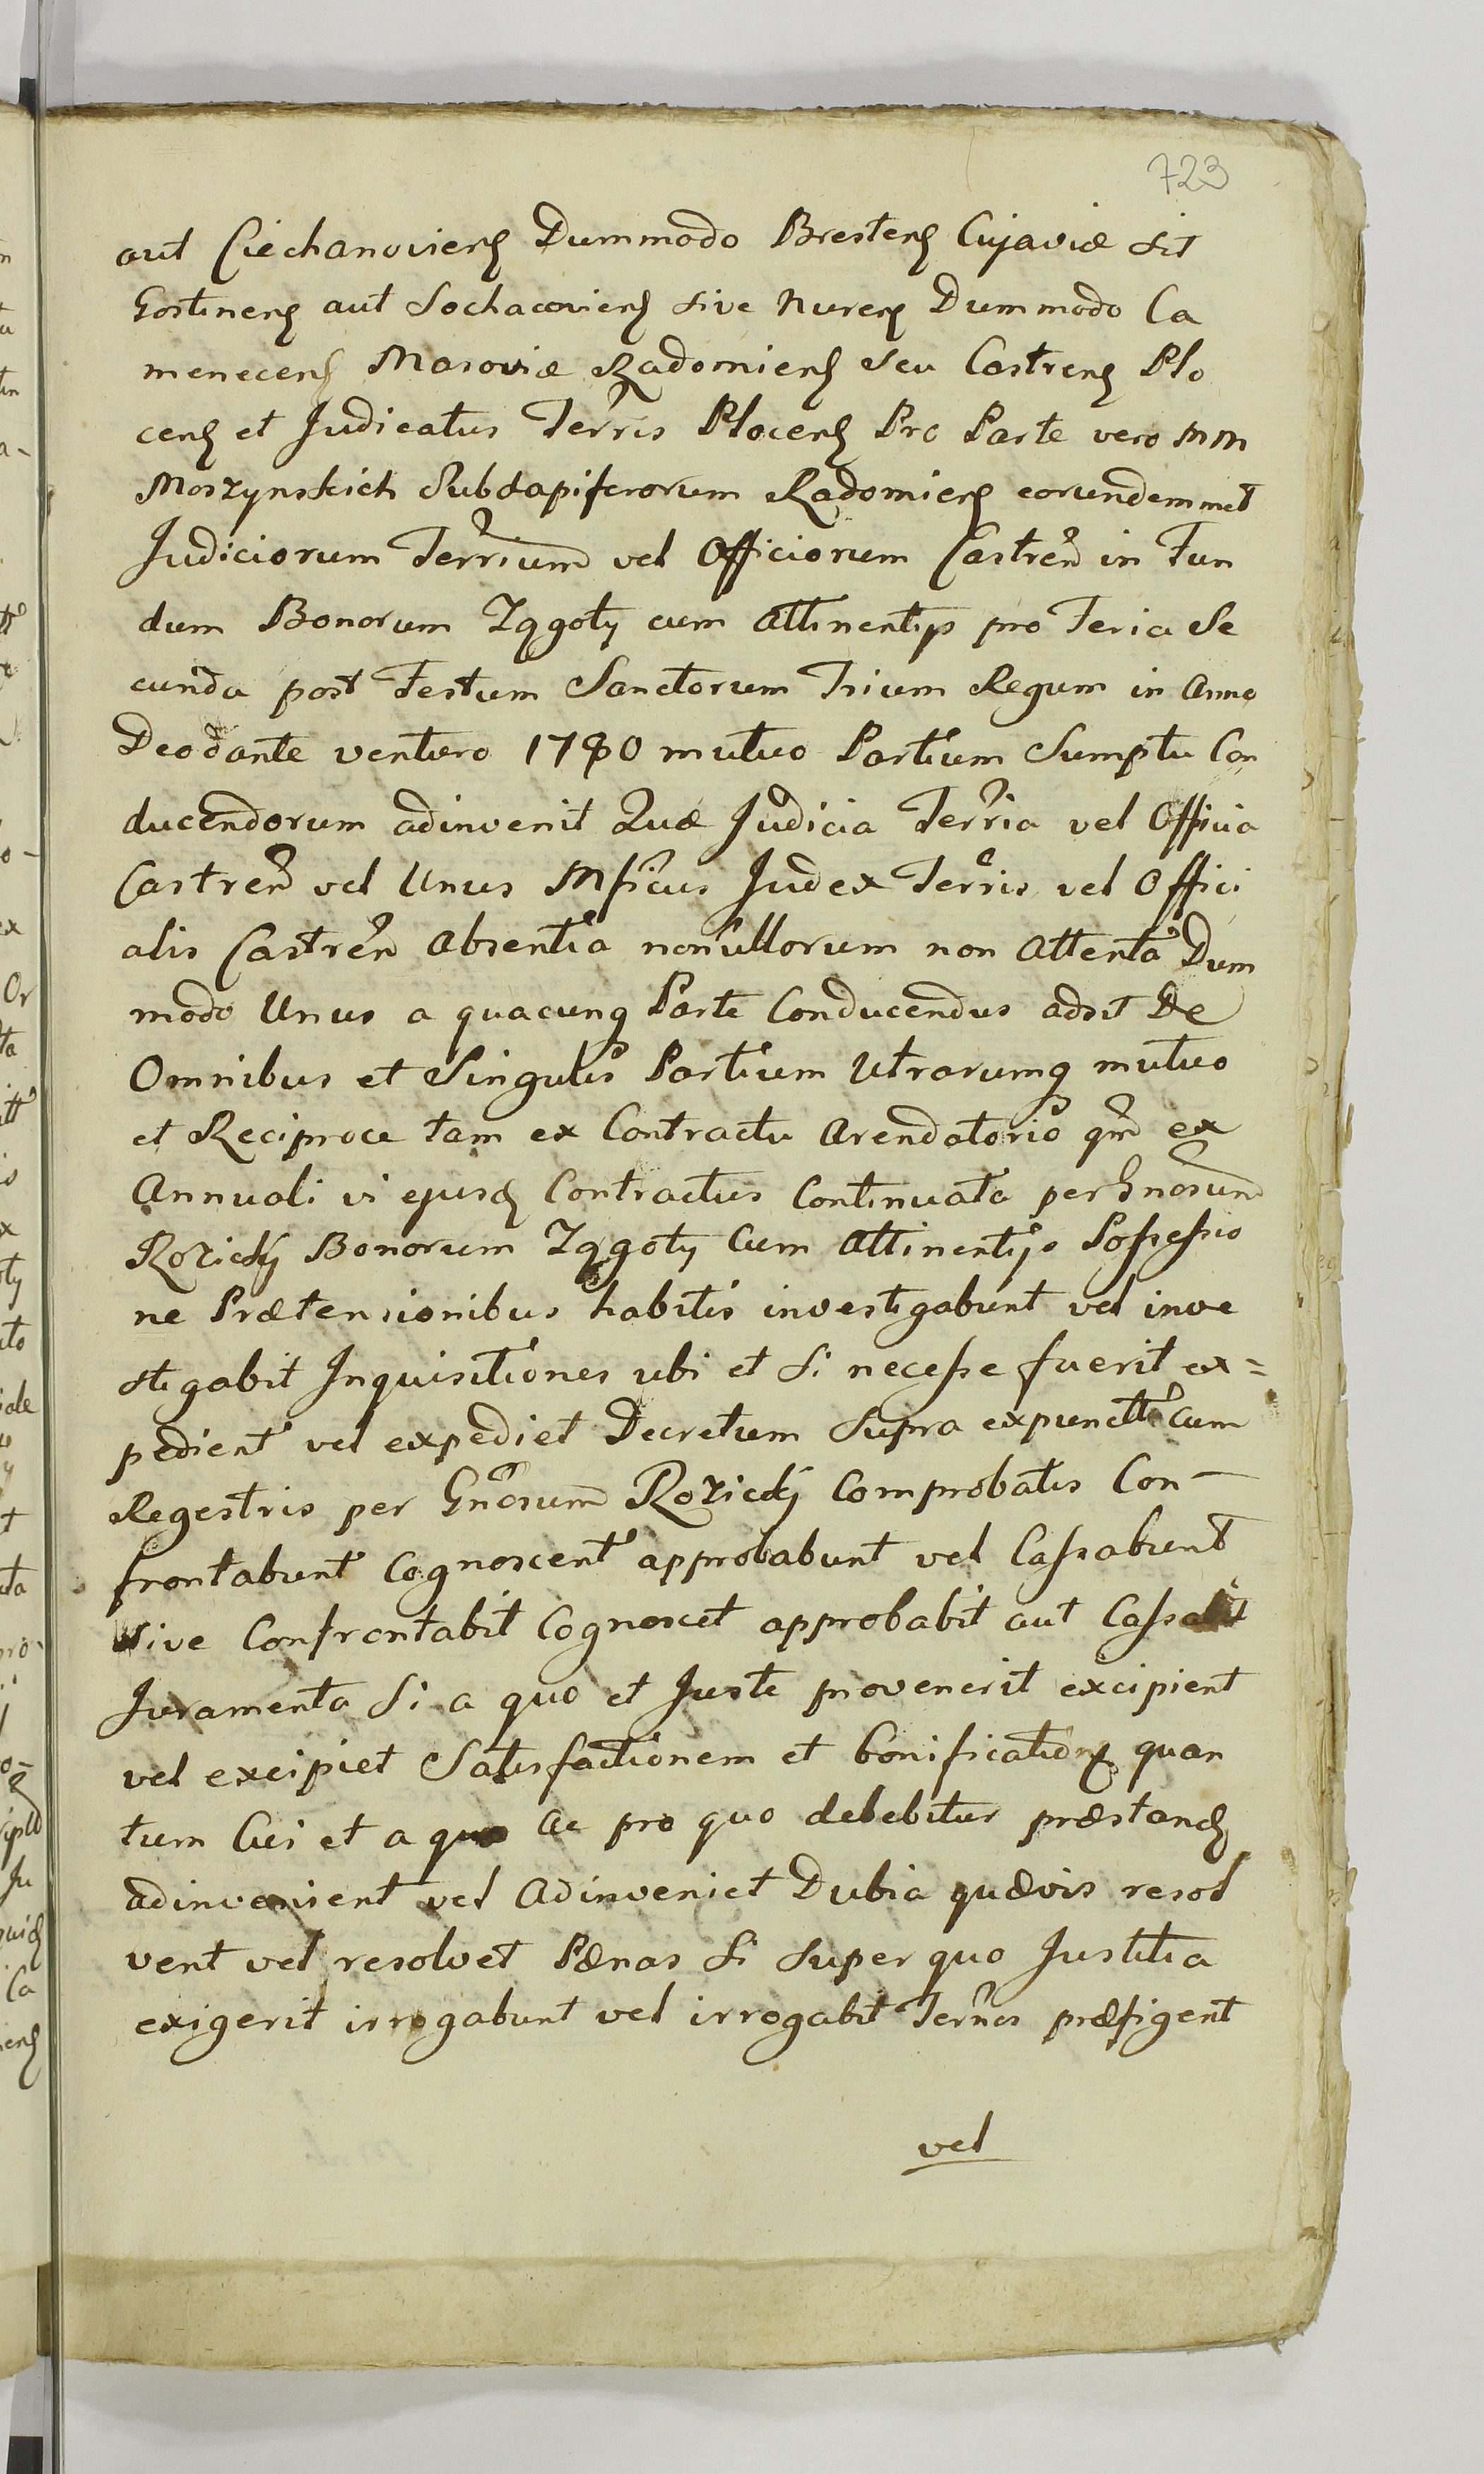 723
aut Ciechanoviens Dummodo Brestens Cujaviæ sit
Gostinens aut Sochacoviens sive Nurens Dummodo Ca
menecens Masoviæ Radomiens seu Castrens Plo
cens et Judicatus Terris Plocens Pro Parte vero MM
Moszynskich Subdapiferorum Radomiens eorundemmet
Judiciorum Terrium vel Officiorum Castren in Fun
dum Bonorum Zggoty cum Attinentijs pro Feria Se
cunda post Festum Sanctorum Trium Regum in Anno
Deodante venturo 1780 mutuo Partium Sumptu Con
ducendorum adinvenit Quæ Judicia Terria vel Officia
Castren vel Unus Mficus Judex Terris vel Offici
alis Castren Absentia nonullorum non Attenta Dum
modo Unus a quacunq Parte Conducendus adsit De
Omnibus et Singulis Partium Utrarumq mutuo
et Reciproce tam ex Contractu Arendatorio qm ex
Annuali vi ejusd Contractus Continuata per Gnosum
Rozicky Bonorum Zggoty Cum Attinentijs Possessio
ne Prætensionibus habitis investigabunt vel inve
stigabit Inquisitiones ubi et si necesse fuerit ex=
pedient vel expediet Decretum supra expunctt cum
Regestris per Gnosum Rozicky Comprobatis Con-
frontabunt Cognoscent approbabunt vel Cassabunt
sive Confrontabit Cognoscet approbabit aut Cassabit
Juramenta Si a quo et Juste provenerit excipient
vel excipiet Satisfactionem et bonification quan
tum Cui et a quo ac pro quo debebitur præstand
adinvenient vel Adinveniet Dubia quævis resol
vent vel resolvet Pænas Si super quo Justitia
exigerit irrogabunt vel irrogabit Ternos præfigent
vel